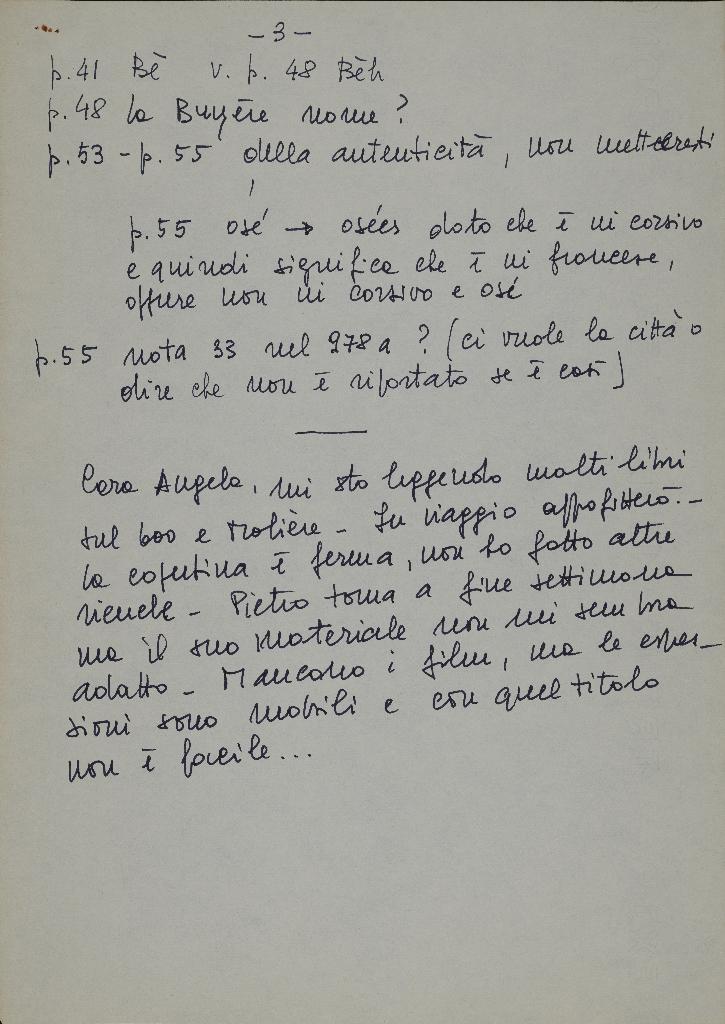 - 3 -
p. 41 Bè v. p. 48 Bèh
p. 48 la Buyère nome?
p. 53 - p. 55 della autenticità, non metteresti
,
p. 55 osé → osées dato che è in corsivo
e quindi significa che è in francese,
oppure non in corsivo e osé
p. 55 nota 33 nel 978 a ? (ci vuole la città o
dire che non è riportato se è così)
Cara Angela, mi sto leggendo molti libri
sul 600 e Molière - In viaggio approfitterò. -
la copertina è ferma, non ho fatto altre
- Pietro torna a fine settimana
ma il suo materiale non mi sembra
adatto - Mancano i film, ma le espres-
sioni sono mobili e con quel titolo
non è facile...